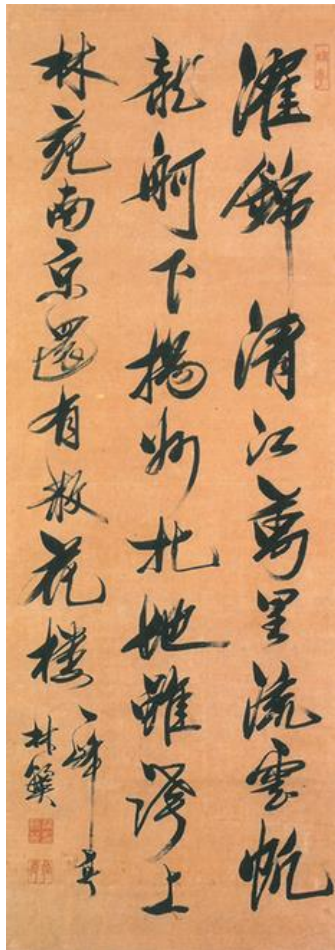 濯錦清江萬里流雲帆
龍舸下揚州北地雖誇上
林苑南京還有散花樓